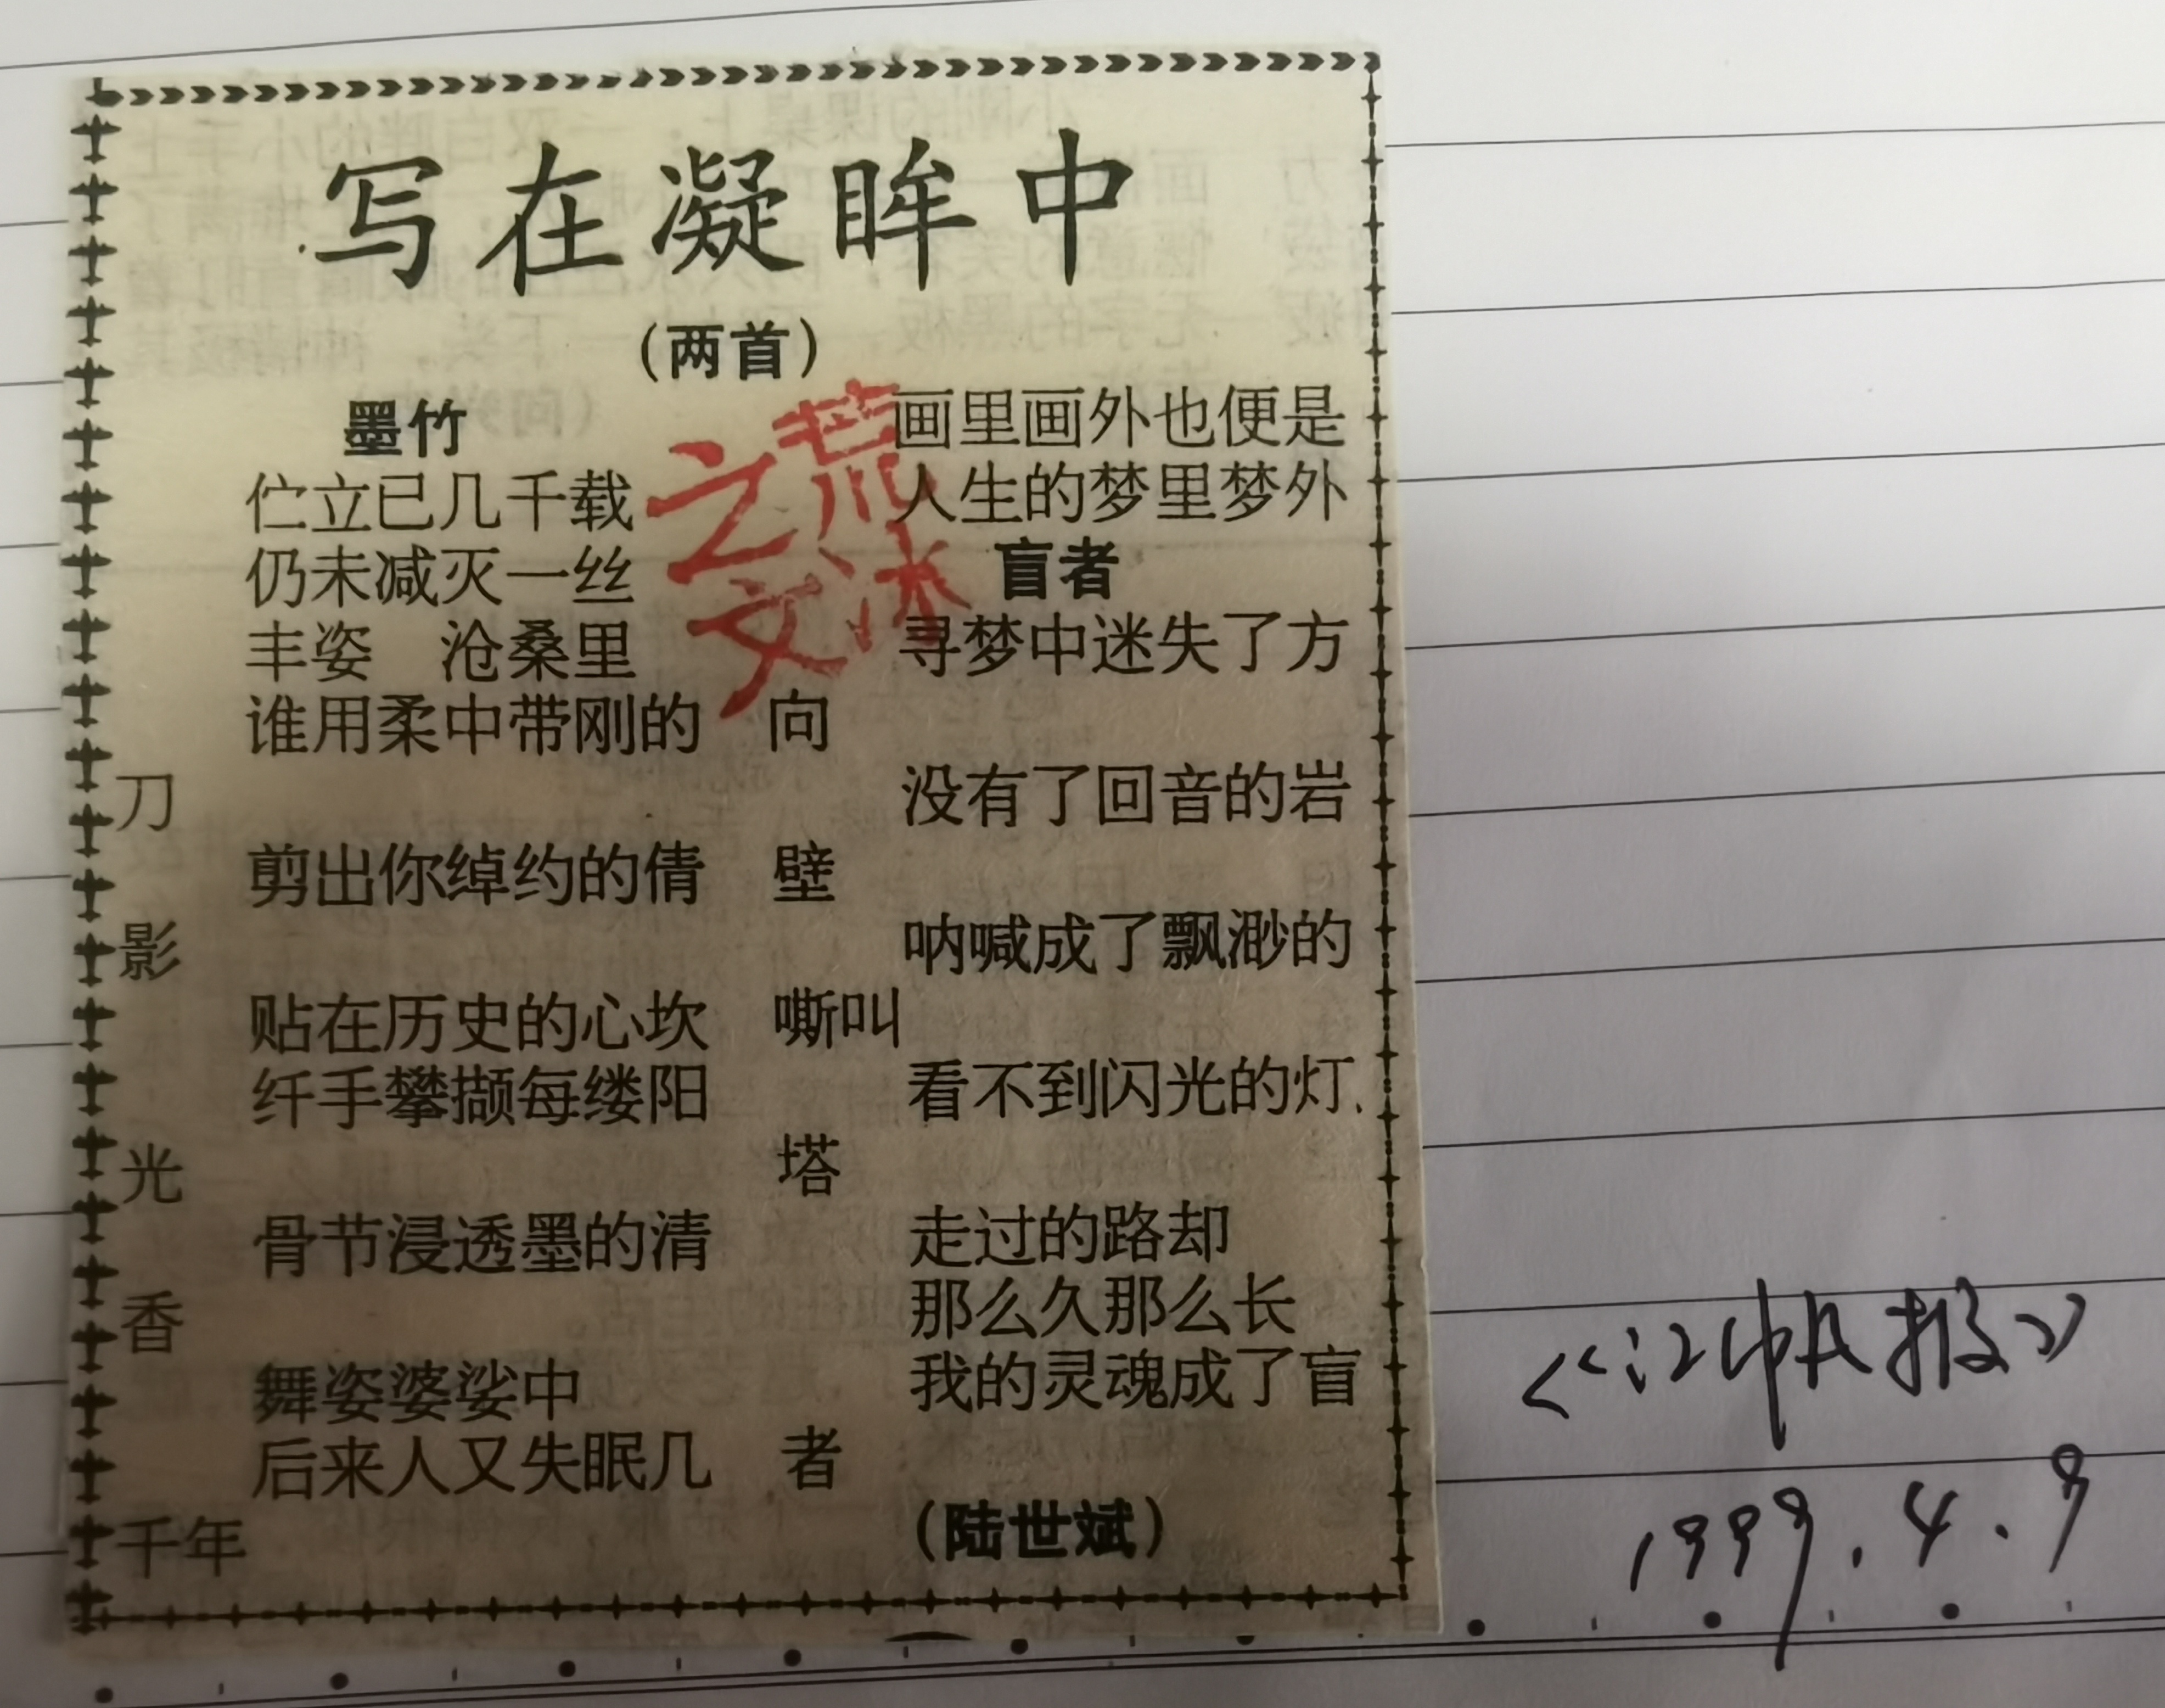 写在凝眸中
(两首)
墨竹
伫立已几千载
仍未减灭一丝
丰姿 沧桑里
谁用柔中带刚的
刀
剪出你绰约的倩
影
贴在历史的心坎
纤手攀撷每缕阳
光
骨节浸透墨的清
香
舞姿婆娑中
后来人又失眠几
千年
画里画外也便是
人生的梦里梦外
盲者
寻梦中迷失了方
向
没有了回音的岩
壁
呐喊成了飘渺的
嘶叫
看不到闪光的灯
塔
走过的路却
那么久那么长
我的灵魂成了盲
者
(陆世斌)
荒冰
之文
《江帆报》
1999.4.9